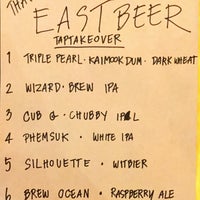 THAI
EAST BEER
TAPTAKEOVER
1 TRIPLE PEARL · KAIMOOK DUM · DARK WHEAT
2 WIZARD · BREW IPA
3 CUB G · CHUBBY IPL
4 PHEMSUK · WHITE IPA
5 SILHOUETTE · WITBIER
6 BREW OCEAN · RASPBERRY ALE